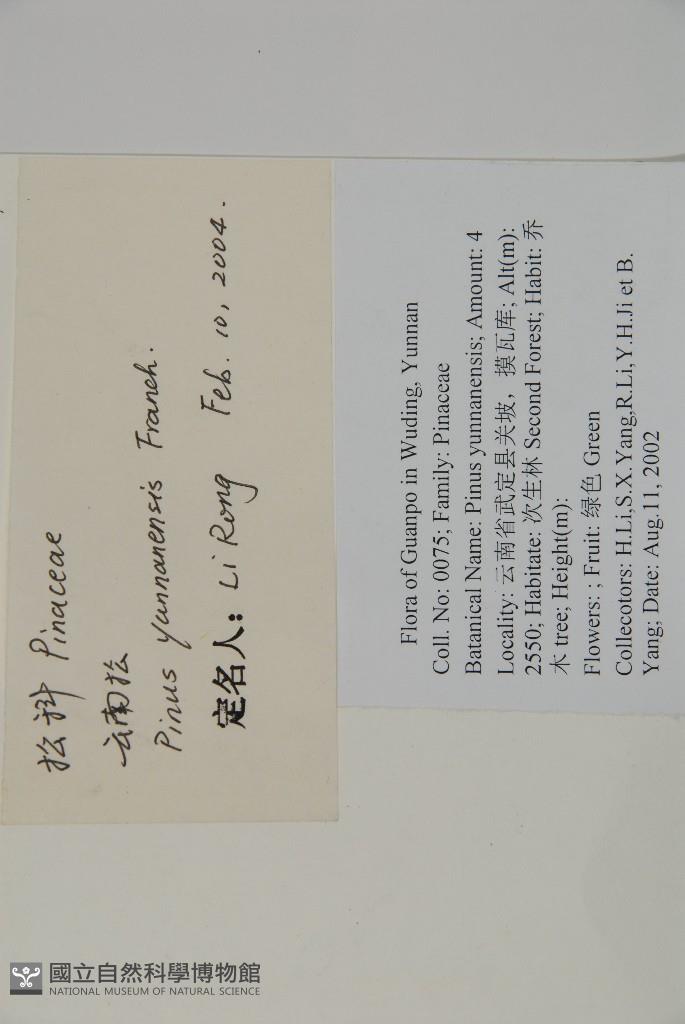 松科 Pinaceae
云南松
Pinus yunnanensis Franch.
定名人： Li Rong Feb. 10, 2004.
Flora of Guanpo in Wuding, Yunnan
Coll. No: 0075; Family: Pinaceae
Batanical Name: Pinus yunnanensis; Amount: 4
Locality: 云南省武定县关坡，摸瓦库; Alt(m):
2550; Habitate: 次生林 Second Forest; Habit: 乔
木 tree; Height(m):
Flowers: ; Fruit: 绿色 Green
Collecotors: H.Li,S.X.Yang,R.Li,Y.H.Ji et B.
Yang; Date: Aug.11, 2002
國立自然科學博物館
NATIONAL MUSEUM OF NATURAL SCIENCE